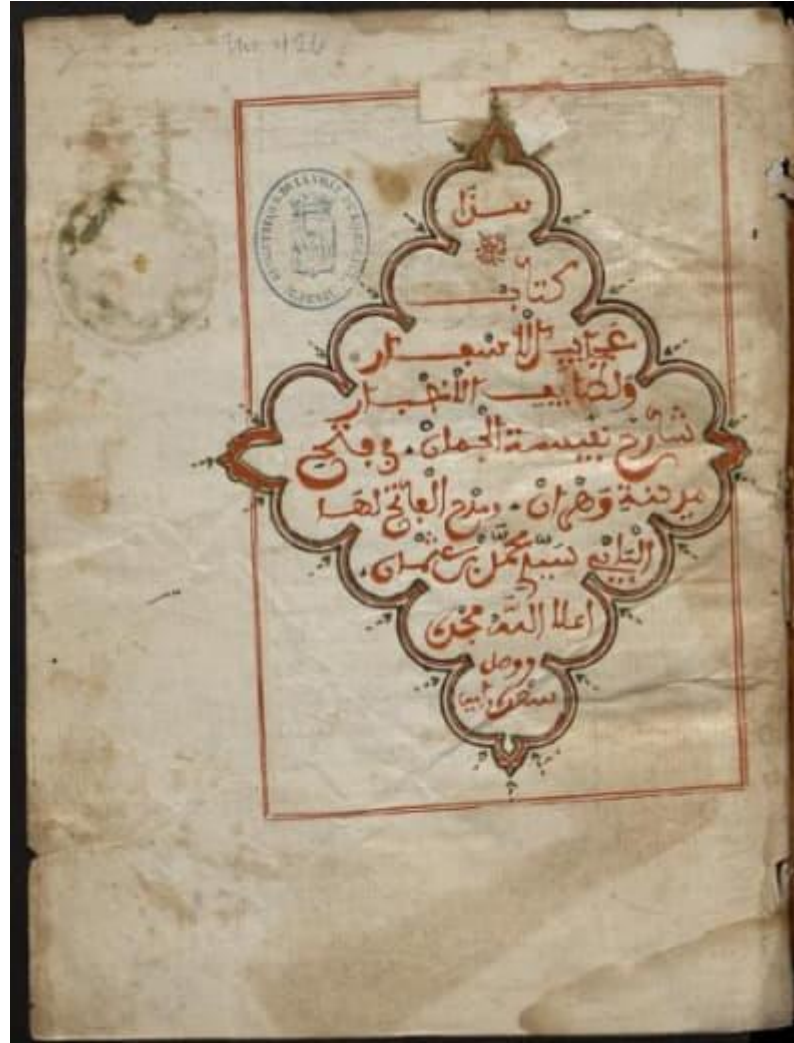 هذا
كتاب
عجايب الاسفار
ولطايف الاخبار
شارح نفيسة الجمان • في فتح
مدينة وهران • ومدح الفاتح لها
الباي سيد محمد بن عثمان •
اعلا الله مجده
ووصل
سعده